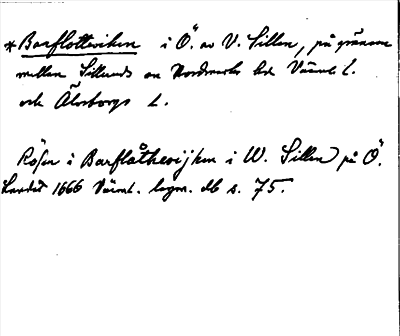 *Barflotteviken i Ö. av V. Sillen, på gränsen
mellan Sillerud o Nordmarks hd Värml l.
och Älvsborgs L.
Röſen i Barflåthevijken i W. Sillen på Ö.
Landet 1666 Värml. legm. db s. 75.